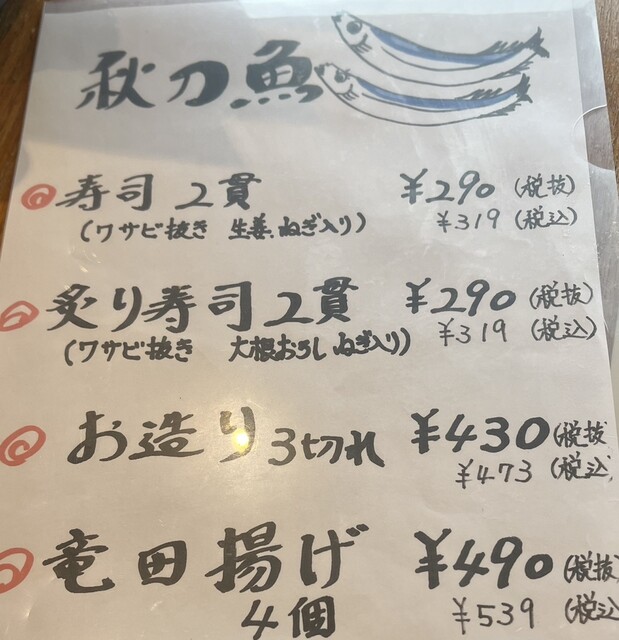 秋刀魚
寿司 2貫 ¥290 (税抜)
(ワサビ抜き 生姜、ねぎ入り) ¥319 (税込)
炙り寿司2貫 ¥290 (税抜)
(ワサビ抜き 大根おろし ねぎ入り) ¥319 (税込)
お造り 3切れ ¥430 (税抜
¥473 (税込
竜田揚げ ¥490 (税抜)
4個 ¥539 (税込